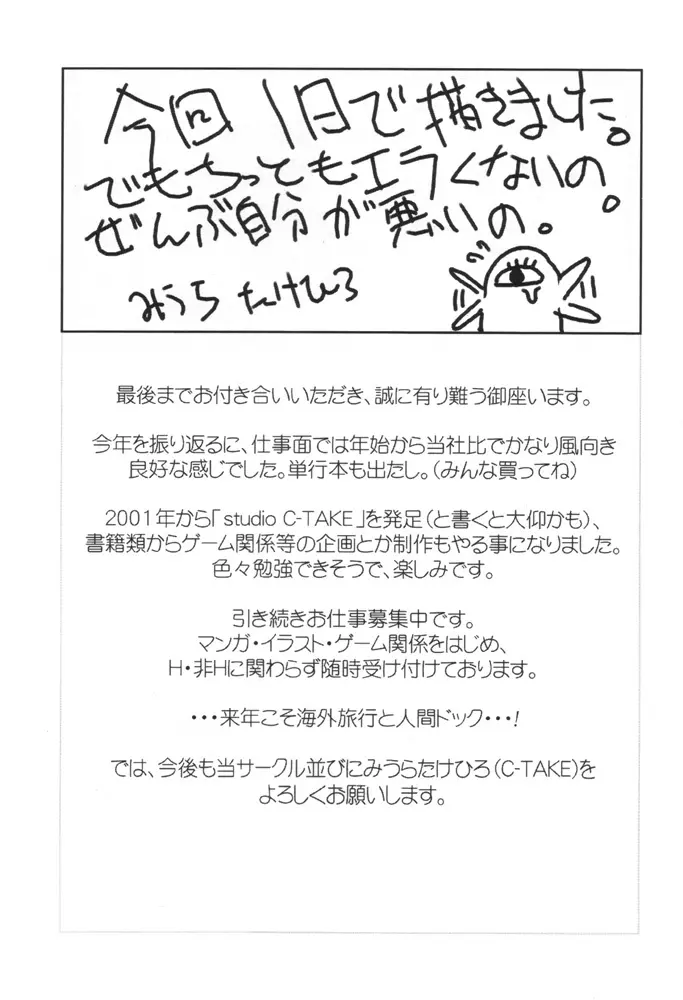 今回1日で描きました。
でもちっともエラくないの。
ぜんぶ自分が悪いの。
みうらたけひろ
最後までお付き合いいただき、誠に有り難う御座います。
今年を振り返るに、仕事面では年始から当社比でかなり風向き
良好な感じでした。単行本も出たし。（みんな買ってね）
2001年から「studio C-TAKE」を発足（と書くと大仰かも）、
書籍類からゲーム関係等の企画とか制作もやる事になりました。
色々勉強できそうで、楽しみです。
引き続きお仕事募集中です。
マンガ・イラスト・ゲーム関係をはじめ、
H・非Hに関わらず随時受け付けております。
・・・来年こそ海外旅行と人間ドック・・・!
では、今後も当サークル並びにみうらたけひろ（C-TAKE）を
よろしくお願いします。